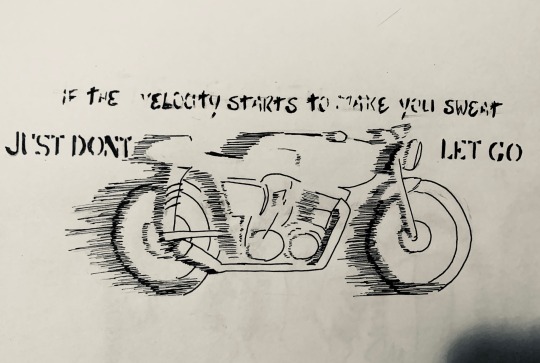 IF THE VELOCITY STARTS TO MAKE YOU SWEAT
JUST DONT LET GO